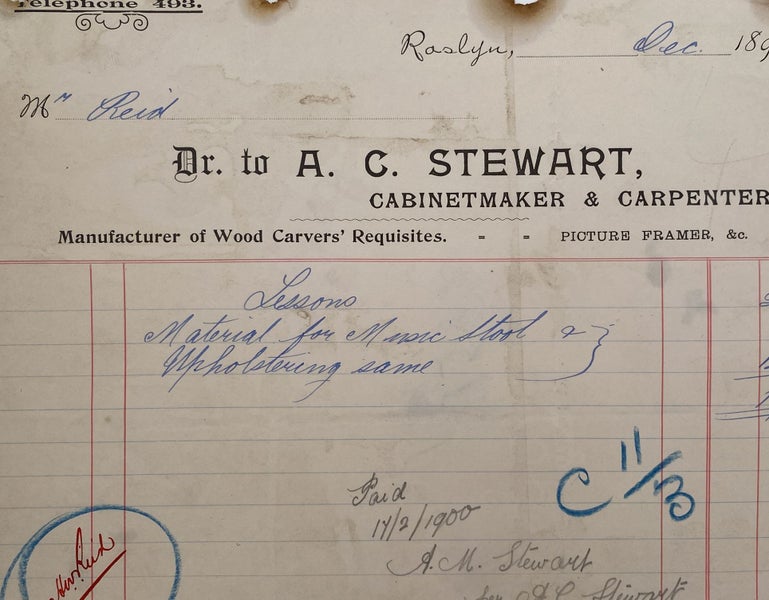 Telephone 493.
Roslyn, Dec. 189
Mr Reid
Dr. to A. C. STEWART,
CABINETMAKER & CARPENTER
Manufacturer of Wood Carvers' Requisites. - - PICTURE FRAMER, &c.
Lessons
Material for Music Stool &
Upholstering same
C 11/B
Paid
17/2/1900
A. M. Stewart
per A C Stewart
Reid